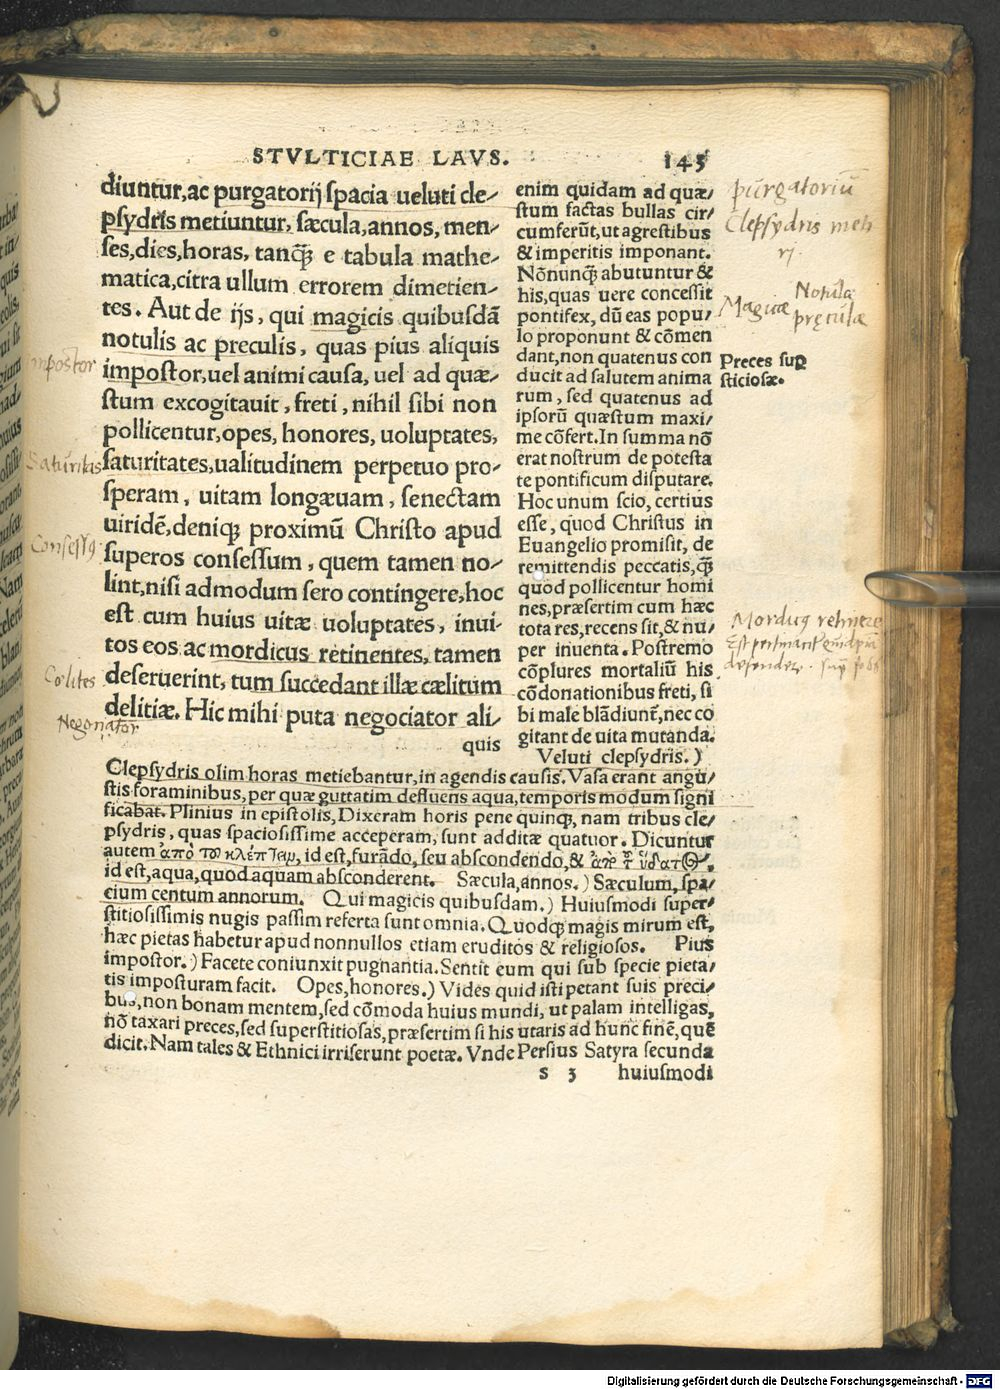 STVLTICIAE LAVS. 145
diuntur, ac purgatorij spacia ueluti cle-
psydris metiuntur, sæcula, annos, men-
ses, dies, horas, tanq̃ e tabula mathe-
matica, citra ullum errorem dimetien-
tes. Aut de ijs, qui magicis quibusdã
notulis ac preculis, quas pius aliquis
impostor, uel animi causa, uel ad quæ-
stum excogitauit, freti, nihil sibi non
pollicentur, opes, honores, uoluptates,
saturitates, ualitudinem perpetuo pro-
speram, uitam longæuam, senectam
uiridẽ, deniqꝫ proximũ Christo apud
superos consessum, quem tamen no-
lint, nisi admodum sero contingere, hoc
est cum huius uitæ uoluptates, inui-
tos eos ac mordicus retinentes, tamen
deseruerint, tum succedant illæ cælitum
delitiæ. Hic mihi puta negociator ali-
quis
enim quidam ad quæ/
stum factas bullas cir/
cumferũt, ut agrestibus
& imperitis imponant.
Nõnunq̃ abutuntur &
his, quas uere concessit
pontifex, dũ eas popu/
lo proponunt & cõmen
dant, non quatenus con
ducit ad salutem anima
rum, sed quatenus ad
ipsorũ quæstum maxi/
me cõfert. In summa nõ
erat nostrum de potesta
te pontificum disputare.
Hoc unum scio, certius
esse, quod Christus in
Euangelio promisit, de
remittendis peccatis, q̃
quod pollicentur homi
nes, præsertim cum hæc
tota res, recens sit, & nu/
per inuenta. Postremo
cõplures mortaliũ his
cõdonationibus freti, si
bi male blãdiunt᷑, nec co
gitant de uita mutanda.
Veluti clepsydris.)
Clepsydris olim horas metiebantur, in agendis causis. Vasa erant angu/
stis foraminibus, per quæ guttatim defluens aqua, temporis modum signi
ficabat. Plinius in epistolis, Dixeram horis pene quinqꝫ, nam tribus cle/
psydris, quas spaciosissime acceperam, sunt additæ quatuor. Dicuntur
autem ἀπὸ τοῦ κλέπτειν, id est, furãdo, seu abscondendo, & ἀπὸ τ͂ ὕδατος,
id est, aqua, quod aquam absconderent. Sæcula, annos.) Sæculum, spa/
cium centum annorum. Qui magicis quibusdam.) Huiusmodi super/
stitiosissimis nugis passim referta sunt omnia. Quodqꝫ magis mirum est,
hæc pietas habetur apud nonnullos etiam eruditos & religiosos. Pius
impostor.) Facete coniunxit pugnantia. Sentit eum qui sub specie pieta/
tis imposturam facit. Opes, honores.) Vides quid isti petant suis preci/
bus, non bonam mentem, sed cõmoda huius mundi, ut palam intelligas,
nõ taxari preces, sed superstitiosas, præsertim si his utaris ad hunc finẽ, quẽ
dicit. Nam tales & Ethnici irriserunt poetæ. Vnde Persius Satyra secunda
s 3 huiusmodi
purgatoriũ
Clepsydris meti
rj.
Magicæ
Notulæ
pręculæ
Preces suꝑ
sticiosæ.
Mordicꝰ retinere
impostor
Saturitas
Consessꝰ
Cœlites
Negotiator
Digitalisierung gefördert durch die Deutsche Forschungsgemeinschaft - DFG